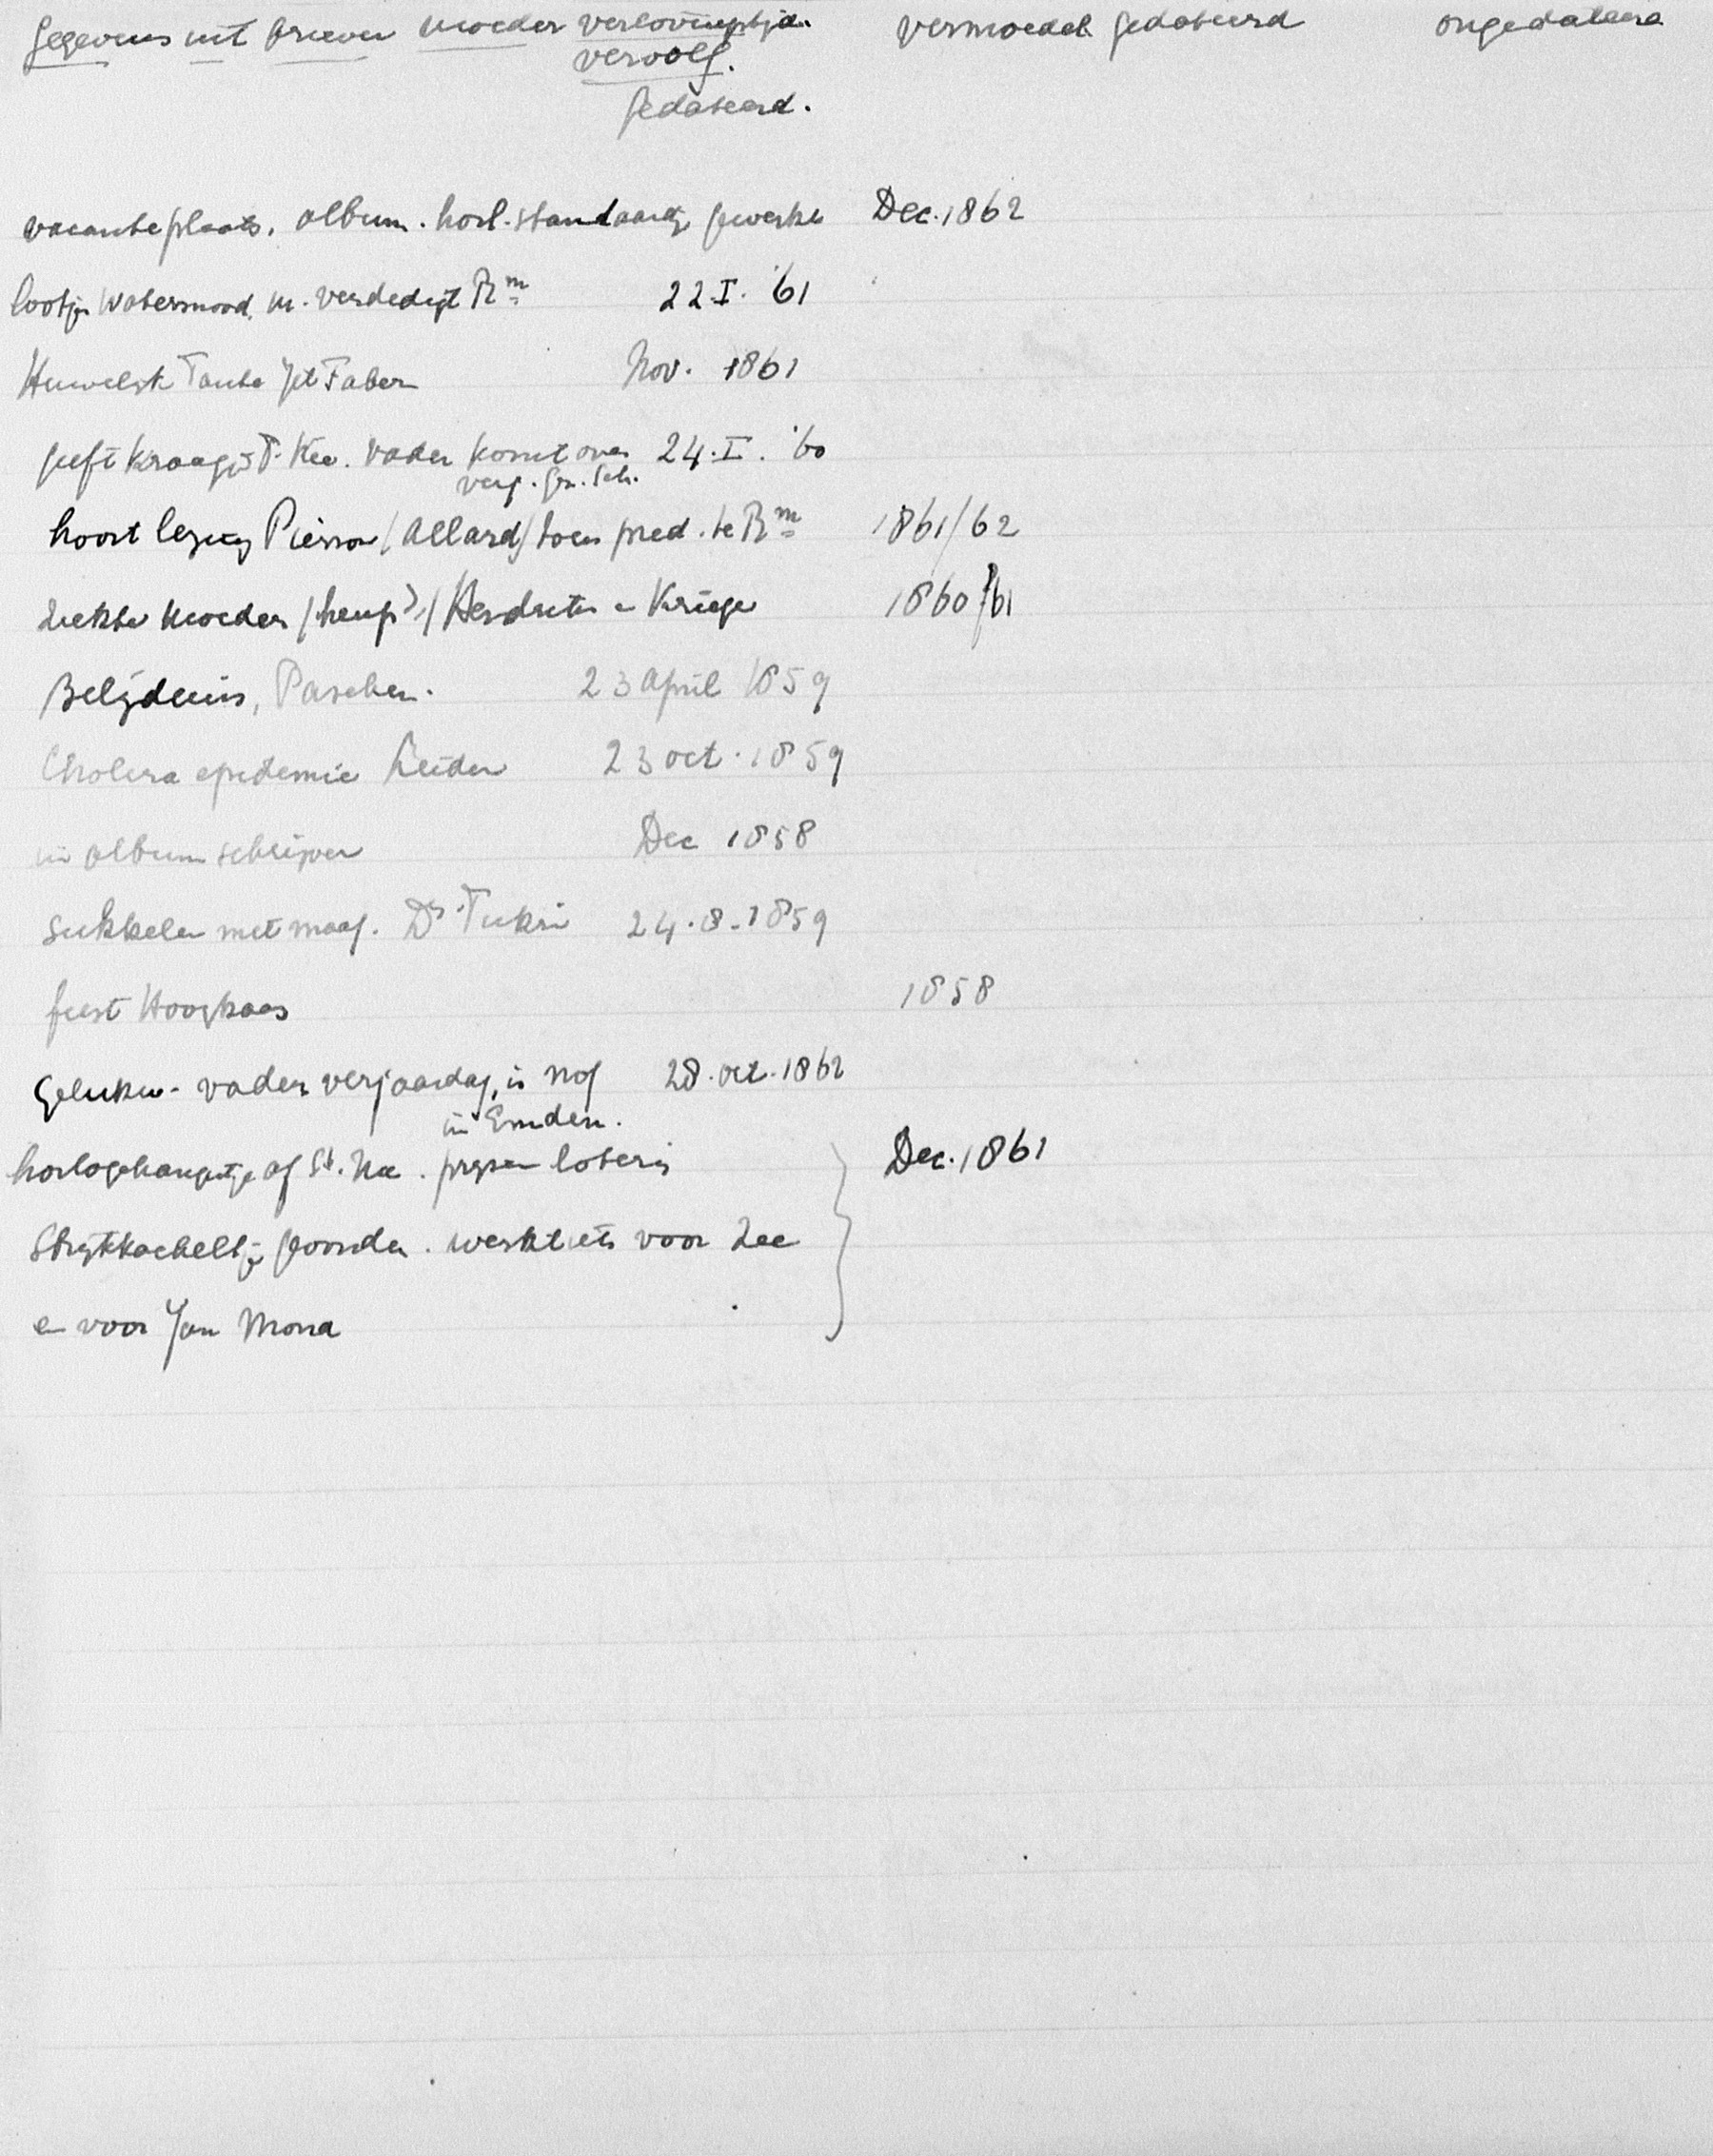 Gegevens uit brieven moeder verlovingstijd. vermoedel. gedateerd ongedateerd
vervolg.
gedateerd.
vacante plaats. album. horl. standaardje gewerkt Dec. 1862
lootje Watersnood. M. verdedigt Rm 22.I.'61
Huwelijk Tante Jet Faber Nov. 1861
geeft kraagje T. Kee. Vader komt over 24.I.'60
verg. Gr. Sch.
hoort lezing Pierson /Allard/ toen pred. te Rm 1861/62
ziekte Moeder /heup?/ Herdruten en Kriege 1860/61
Belijdenis, Paschen. 23 April 1859
Cholera epidemie Leiden 23 oct. 1859
in album schrijven Dec 1858
Sukkelen met maag. Dr. 24.8.1859
feest Hoogkaas 1858
Gelukw. vaders verjaardag, is nog 28. oct. 1862
in Emden.
horlogehangertje af St. Nic. prijzen loterij Dec. 1861
Strijkkacheltje gevonden. werkt iets voor Zee
en voor Jan Mona